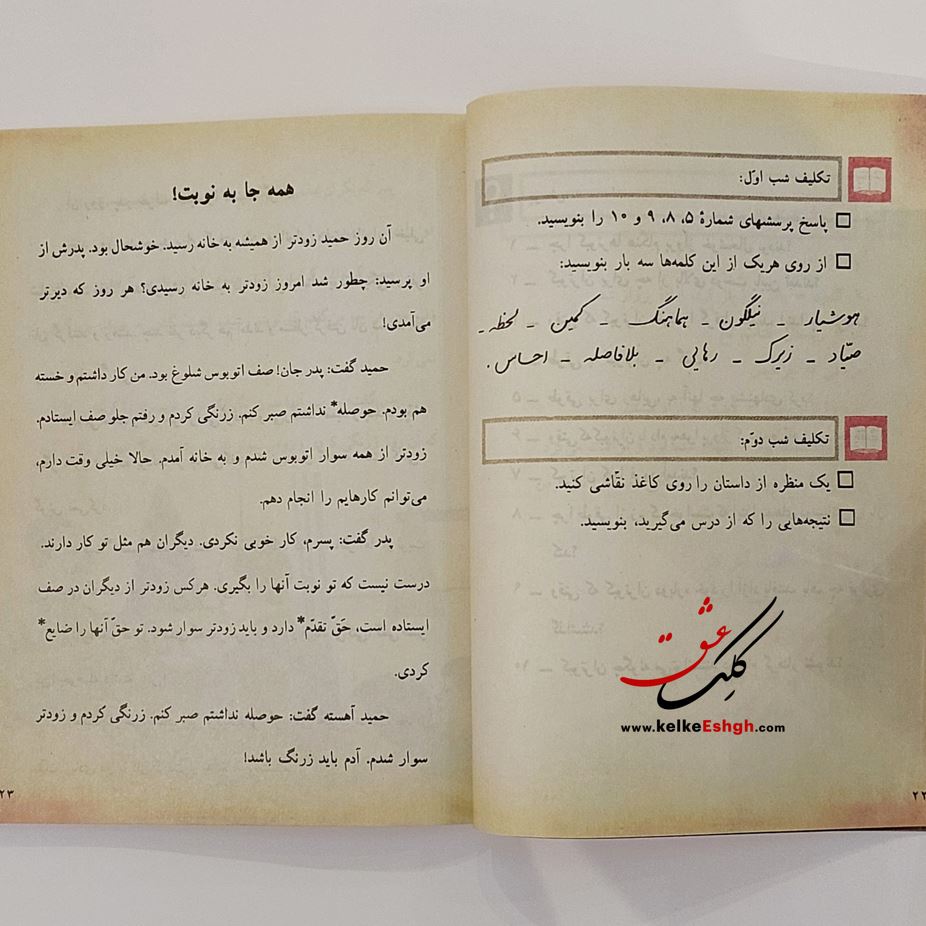 تکلیف شب اوّل:
پاسخ پرسشهای شمارهٔ ۵، ۸، ۹ و ۱۰ را بنویسید.
از روی هریک از این کلمه‌ها سه بار بنویسید:
هوشیار - نیلگون - هماهنگ - کمین - لحظه -
صیّاد - زیرک - رهایی - بلافاصله - احساس.
تکلیف شب دوّم:
یک منظره از داستان را روی کاغذ نقّاشی کنید.
نتیجه‌هایی را که از درس می‌گیرید، بنویسید.
کلک عشق
www.kelkeEshgh.com
۲۲
همه جا به نوبت!
آن روز حمید زودتر از همیشه به خانه رسید. خوشحال بود. پدرش از
او پرسید: چطور شد امروز زودتر به خانه رسیدی؟ هر روز که دیرتر
می‌آمدی!
حمید گفت: پدر جان! صف اتوبوس شلوغ بود. من کار داشتم و خسته
هم بودم. حوصله* نداشتم صبر کنم. زرنگی کردم و رفتم جلو صف ایستادم.
زودتر از همه سوار اتوبوس شدم و به خانه آمدم. حالا خیلی وقت دارم،
می‌توانم کارهایم را انجام دهم.
پدر گفت: پسرم، کار خوبی نکردی. دیگران هم مثل تو کار دارند.
درست نیست که تو نوبت آنها را بگیری. هرکس زودتر از دیگران در صف
ایستاده است، حَقّ تقدّم* دارد و باید زودتر سوار شود. تو حقّ آنها را ضایع*
کردی.
حمید آهسته گفت: حوصله نداشتم صبر کنم. زرنگی کردم و زودتر
سوار شدم. آدم باید زرنگ باشد!
۲۳